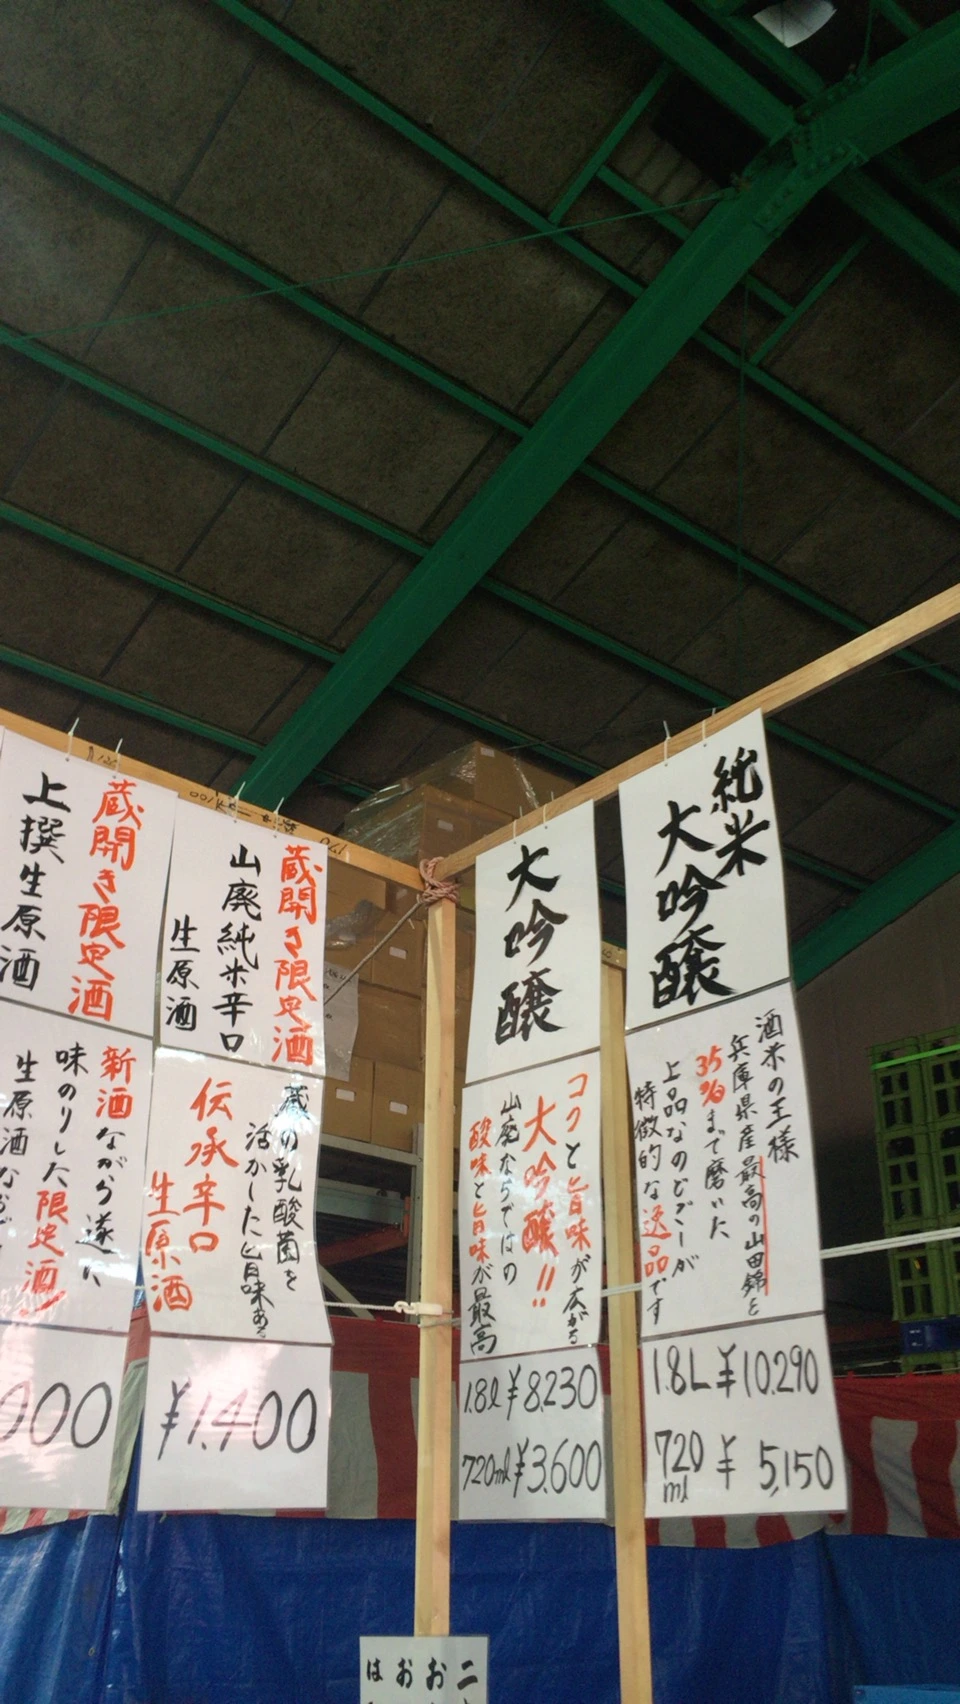 純米
大吟醸
酒米の王様
兵庫県産最高の山田錦を
35%まで磨いた
上品なのどごしが
特徴的な逸品です
1.8L ¥10,290
720ml ¥5,150
大吟醸
コクと旨味が広がる
大吟醸!!
山廃ならではの
酸味と旨味が最高
1.8ℓ ¥8,230
720ml ¥3,600
蔵開き限定酒
山廃純米辛口
生原酒
蔵の乳酸菌を
活かした旨味ある
伝承辛口
生原酒
¥1,400
蔵開き限定酒
上撰生原酒
新酒ながら
味のりした限定酒
生原酒
000
お
お
は